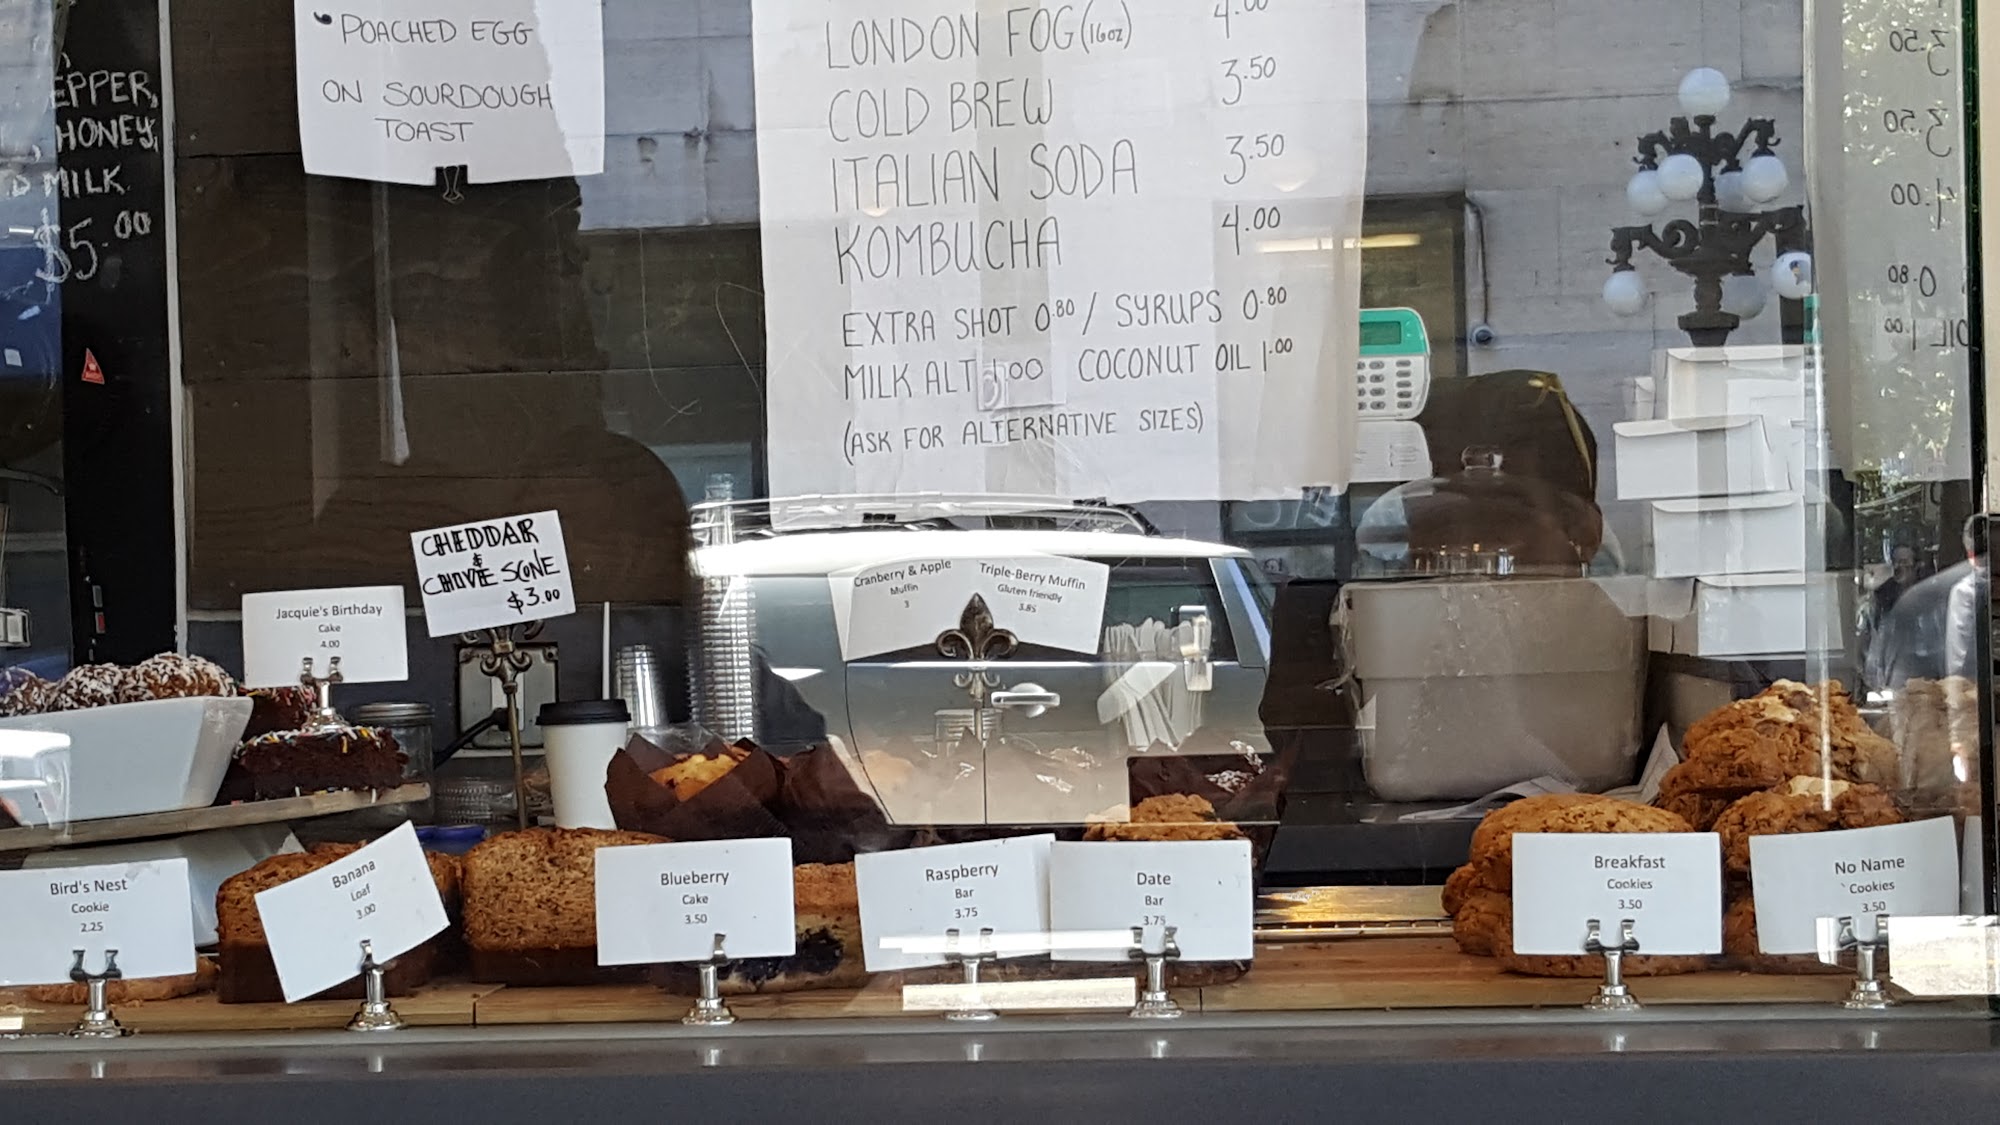 EPPER,
HONEY,
MILK
$5.00
• POACHED EGG
ON SOURDOUGH
TOAST
LONDON FOG (16oz) 4.00
COLD BREW 3.50
ITALIAN SODA 3.50
KOMBUCHA 4.00
EXTRA SHOT 0.80 / SYRUPS 0.80
MILK ALT 1.00 COCONUT OIL 1.00
(ASK FOR ALTERNATIVE SIZES)
3.50
3.50
4.00
0.80
OIL 1.00
CHEDDAR
&
CHIVE SCONE
$3.00
Jacquie's Birthday
Cake
4.00
Cranberry & Apple
Muffin
3
Triple-Berry Muffin
Gluten friendly
3.85
Bird's Nest
Cookie
2.25
Banana
Loaf
3.00
Blueberry
Cake
3.50
Raspberry
Bar
3.75
Date
Bar
3.75
Breakfast
Cookies
3.50
No Name
Cookies
3.50